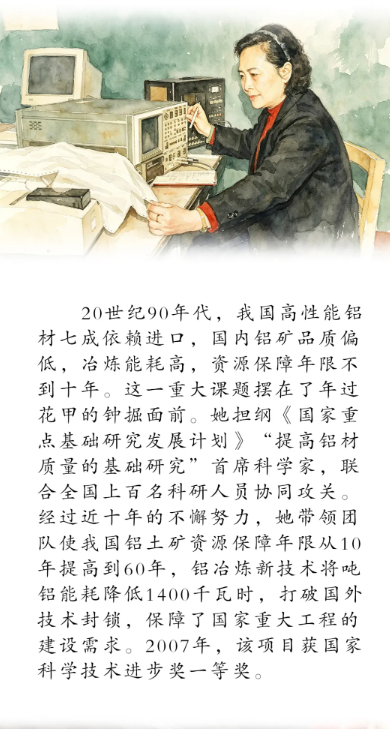 20世纪90年代，我国高性能铝
材七成依赖进口，国内铝矿品质偏
低，冶炼能耗高，资源保障年限不
到十年。这一重大课题摆在了年过
花甲的钟掘面前。她担纲《国家重
点基础研究发展计划》“提高铝材
质量的基础研究”首席科学家，联
合全国上百名科研人员协同攻关。
经过近十年的不懈努力，她带领团
队使我国铝土矿资源保障年限从10
年提高到60年，铝冶炼新技术将吨
铝能耗降低1400千瓦时，打破国外
技术封锁，保障了国家重大工程的
建设需求。2007年，该项目获国家
科学技术进步奖一等奖。